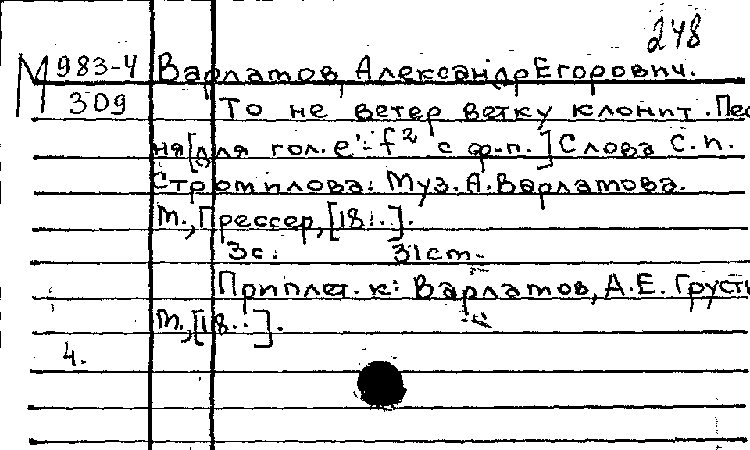 248
М 983-4 Варлатов, Александр Егорович.
309 То не ветер ветку клонит. Пес
ня [для гол. e'-f² с ф-п.] Слова С.п.
Стромилова. Муз. А. Варлатова.
М., Прессер, [18..].
3с. 31 ст.
Приплет. к: Варлатов, А.Е. Грусть
М., [18..].
4.